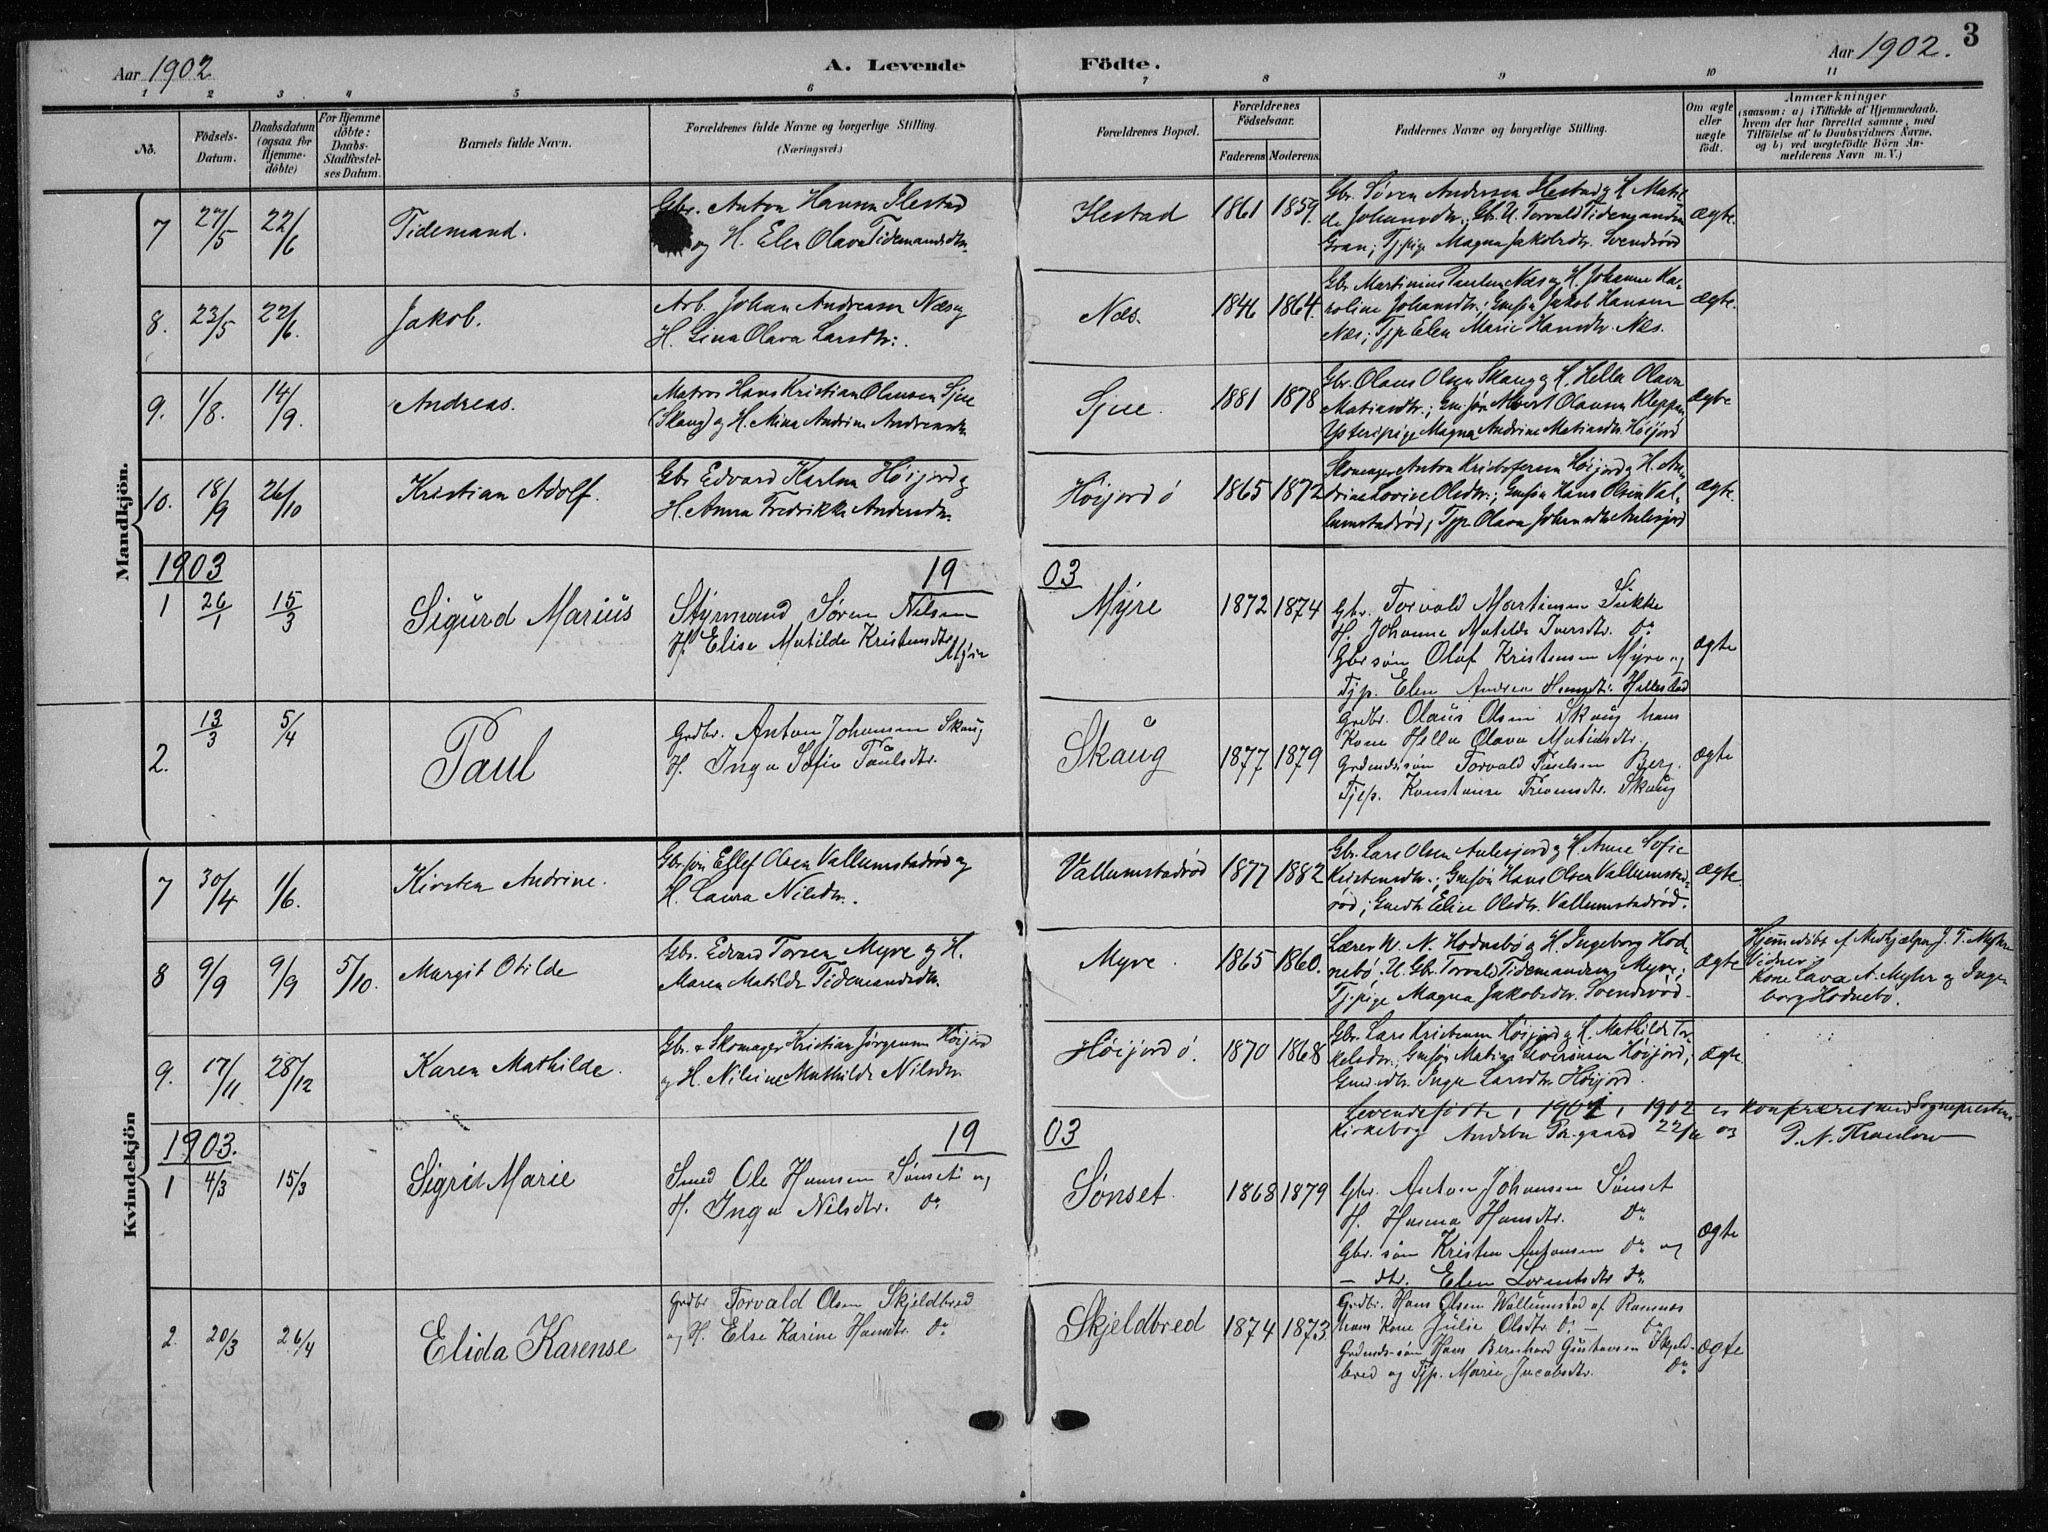 3
Aar 1902
A. Levende Födte.
Aar 1902.
1 2 3 4 5 6 7 8 9 10 11
No.
Födsels-Datum.
Daabsdatum (ogsaa for Hjemme-döbte)
For Hjemme döbte: Daabs-Stadfæstel-ses Datum.
Barnets fulde Navn.
Forældrenes fulde Navne og borgerlige Stilling. (Næringsvei.)
Forældrenes Bopæl.
Forældrenes Födselsaar.
Faderens Moderens.
Faddernes Navne og borgerlige Stilling.
Om ægte eller uægte födt.
Anmærkninger
(saasom: a) i Tilfælde af Hjemmedaab, hvem der har forrettet samme, med Tilföielse af to Daabsvidners Navne, og b) ved uægtefödte Börn An-melderens Navn m. V.)
Mandkjön.
7 27/5 22/6 Tidemand.
Gbr. Anton Hansen Hestad
og H. Elen Olava Tidemandsdtr.
Hestad 1861 1859.
Gbr. Søren Andersen Hestad og H. Matil-
de Johansdtr.; Gbr. U. Torvald Tidemandsen
Gran; Tj.pige Magna Jakobsdtr. Svendsrød
ægte.
8. 23/5 22/6. Jakob.
Arb. Johan Andreasen Næs og
H. Gina Olava Larsdtr.
Næs. 1846 1864.
Gbr Martinius Paulsen Næs og H. Johanne Ka-
roline Johansdtr.; Gmsøn Jakob Hansen
Næs; Tjp Elen Marie Hansdtr. Næs.
ægte.
9. 1/8. 14/9. Andreas.
Matros Hans Kristian Olausen Sjue
(Skaug) og H. Mina Andrine Andreasdtr.
Sjue. 1881 1878
Gbr. Olaus Olsen Skaug og H. Hella Olava
Matiasdtr.; Gmsøn Albert Olausen Kleppan
Ysteripige Magna Andrine Matiasdtr. Høijord
ægte
10. 18/9 26/10 Kristian Adolf.
Gbr Edvard Karlsen Høijord og
H. Anna Fredrikke Andersdtr.
Høijord ø 1865 1872
Skomager Anton Kristofersen Høijord og H. An-
drine Lovise Olsdtr.; Gmsøn Hans Olsen Val-
lumstadrød; Tjp Olava Johansdtr. Aulesjord
ægte.
1903 19 03
1 26/1 15/3 Sigurd Marius
Styrmand Søren Nilsen
H. Elise Matilde Kristensdtr. Myre
Myre 1872 1874
Gbr. Torvald Martinsen Sukke
H. Johanne Matilde Iversdtr. do
Gbr søn Olaf Kristensen Myre og
Tjp. Elen Andrea Hansdtr. Hillestad
ægte
2. 13/3 5/4 Paul
Grdbr. Anton Johansen Skaug
H. Inga Sofie Paulsdtr.
Skaug 1877 1879
Grdbr. Olaus Olsen Skaug hans
Kone Hella Olava Matiasdtr.
Grdmdssøn Torvald Paulsen Berg.
Tjep. Konstanse Torensdtr. Skaug
ægte
Kvindekjön
7 30/4 1/6. Kirsten Andrine.
Gbrsøn Ellef Olsen Vallumstadrød og
H. Laura Nilsdtr.
Vallumstadrød 1877 1882
Gbr. Lars Olsen Aulesjord og H. Anne Sofie
Kristensdtr.; Gmsøn Hans Olsen Vallumstad-
rød; Gmdtr Elise Olsdtr. Vallumstadrød.
ægte.
8 9/9 9/9 5/10. Margit Otilde
Gbr. Edvard Torsen Myre og H.
Maren Matilde Tidemandsdtr.
Myre. 1865 1860.
Lærer N. N. Hodnebø og H. Ingeborg Hod-
nebø. U. Gbr. Torvald Tidemandsen Myre;
Tj.pige Magna Jakobsdtr. Svendsrød.
ægte
Hjemmedøbt af Medhjælper J. T. Myhre
Vidner:
Kone Lava A. Myhre og Inge-
borg Hodnebø.
9. 17/11 28/12 Karen Mathilde.
Gbr. & Skomager Kristian Jørgensen Høijord
og H. Nilsine Mathilde Nilsdtr.
Høijord ø. 1870 1868
Gbr. Lars Kristensen Høijord og H. Mathilde Tor-
kelsdtr.; Gmsøn Matias Severinsen Høijord;
Gmd.dtr. Inga Larsdtr. Høijord.
ægte.
Levendefødte i 1901 i 1902 er konfereret med Sogneprestens
kirkebog Andebu Pr.gaard 22/12 02
P. N. Thaulow
1903. 19 03
1 4/3 15/3 Sigrid Marie
Smed Ole Hansen Sønset og
H. Inga Nilsdtr. do
Sønset. 1868 1879
Gbr. Anton Johansen Sønset
H. Hanna Hansdtr. do
Gbr. søn Kristen Antonsen do og
— dtr. Elen Lorentsdtr do
ægte
2. 20/3 26/4 Elida Karense
Grdbr Torvald Olsen Skjeldbred
og H. Else Karine Hansdtr. do
Skjeldbred 1874 1873.
Grdbr. Hans Olsen Wallumstad af Ramnæs
hans Kone Julie Olsdtr. do — do
Grdmds-søn Hans Bernhard Gustavsen Skjeld-
bred og Tjp. Marie Jacobsdtr. do
ægte